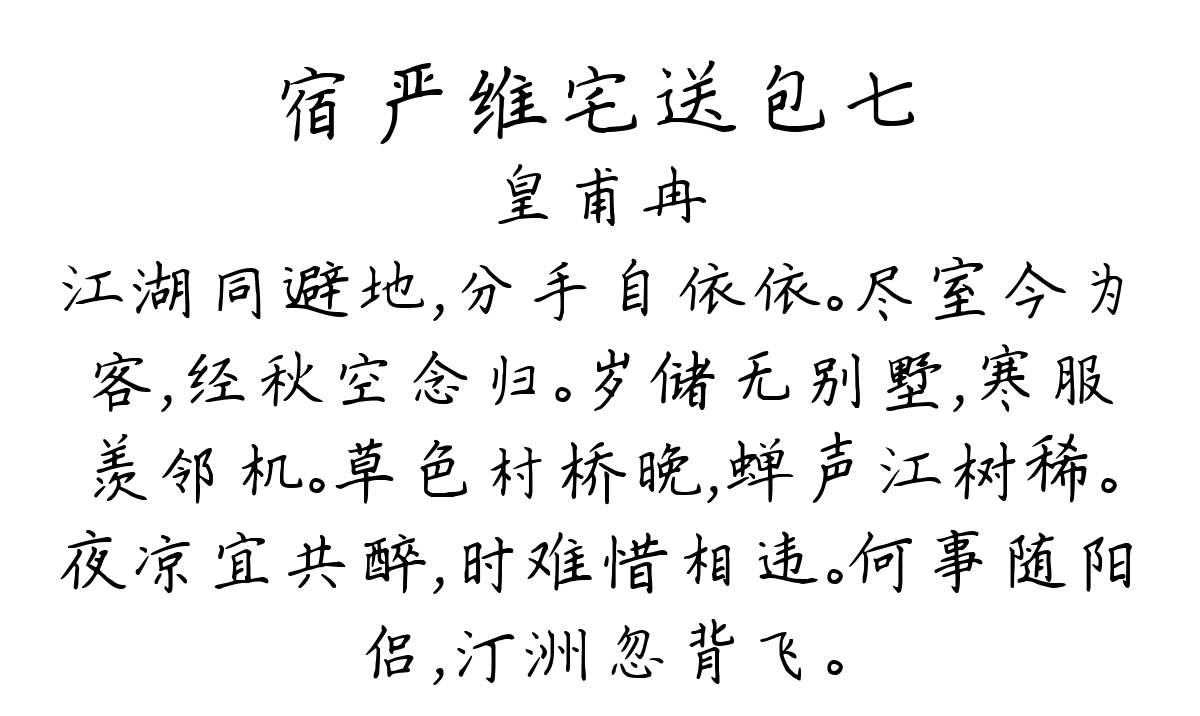 宿严维宅送包七
皇甫冉
江湖同避地,分手自依依。尽室今为
客,经秋空念归。岁储无别墅,寒服
羡邻机。草色村桥晚,蝉声江树稀。
夜凉宜共醉,时难惜相违。何事随阳
侣,汀洲忽背飞。